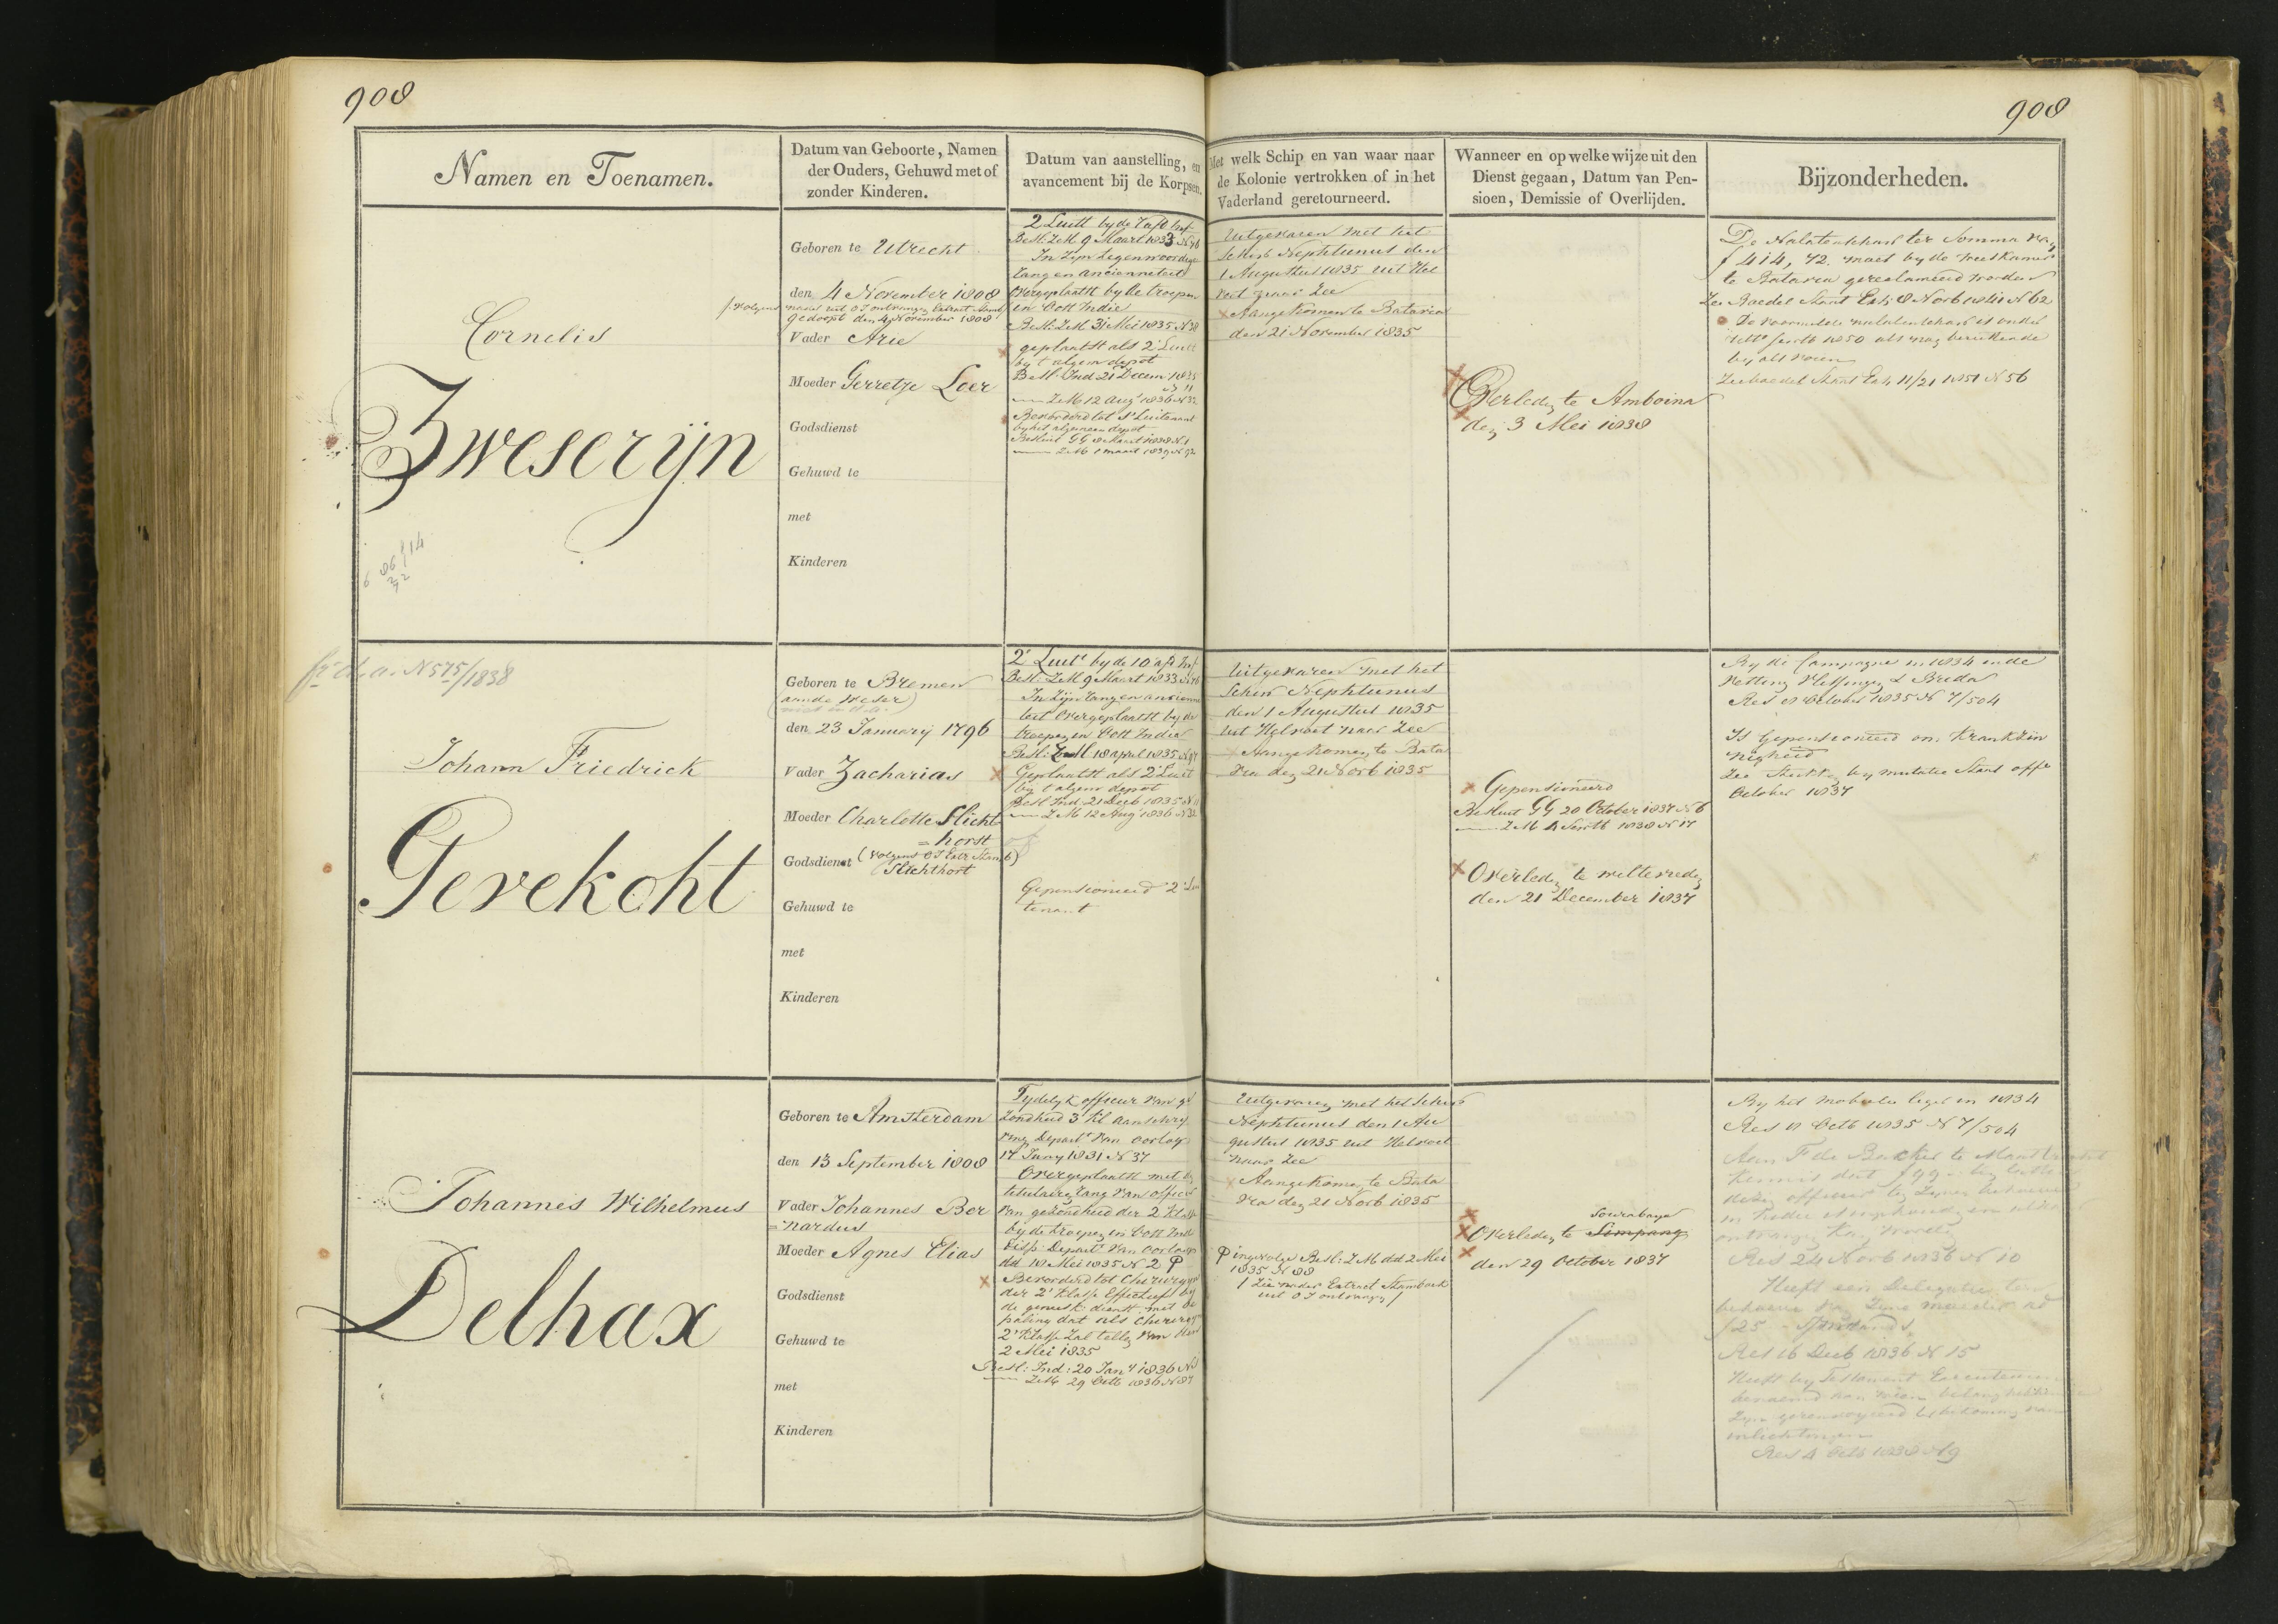 908
908
Namen en Toenamen.
Datum van Geboorte, Namen
der Ouders, Gehuwd met of
zonder Kinderen.
Datum van aanstelling, en
avancement bij de Korpsen.
Met welk Schip en van waar naar
de Kolonie vertrokken of in het
Vaderland geretourneerd.
Wanneer en op welke wijze uit den
Dienst gegaan, Datum van Pen-
sioen, Demissie of Overlijden.
Bijzonderheden.
Cornelis
Zweserijn
Geboren te Utrecht
den 4 November 1808
gedoopt den 4 November 1808
Vader Arie
Moeder Gerretje Loer
Godsdienst
Gehuwd te
met
Kinderen
2 Luitt by de
Besl: ZeM 9 Maart 1833 N 76
In zijn tegenwoordige
rang en ancienneteit
overgeplaatst by de troepen
in Oost Indie
Besl: ZeM 31 Mei 1835 N 38
geplaatst als 2e Luitt
by t algem depot
Besl: Ind 21 Decem: 1835
N 11
ZeM 12 Aug 1836 N 32
Bevorderd tot 1e Luitenant
by het algemeen depot
Besluit GG 8 Maart 1838 N 1
ZeM 1 maart 1839 N 92
Uitgevaren met het
Schip Nephtunus den
1 Augustus 1835 uit Hel
voet naar Zee
Aangekomen te Batavia
den 21 November 1835
Overleden te Amboina
den 3 Mei 1838
De Nalatenschap ter Somma van
f 414, 72. moet by de weeskamer
te Batavia gereclameerd worden
Zee Boedel Staat Exh 8 Novb 1841 N 62
De voormelde nalatenschap is onder
Zee boedel Staat Exh 11/21 1851 N 56
N 575/1838
Johann Friedrick
Gevekoht
Geboren te Bremen
(aan de Weser)
den 23 January 1796
Vader Zacharias
Moeder Charlotte Slicht
= horst
(volgens OI Extr Stamb)
Godsdienst Slichthort
Gehuwd te
met
Kinderen
2e Luitt by de 10e afd Inf
Besl: ZeM 9 Maart 1833 N 76
In zijn rang en ancienne
teit overgeplaatst by de
troepen in Oost Indie
Besl: ZeM 18 april 1835 N 87
Geplaatst als 2e Luitt
by t algem depot
Besl Ind: 21 Decb 1835 N 11
ZeM 12 Aug 1836 N 32
Gepensioneerd 2e Lui
tenant
Uitgevaren met het
Schip Nephtunus
den 1 Augustus 1835
uit Helvoet naar Zee
Aangekomen te Bata
via den 21 Novb 1835
Gepensioneerd
Besluit GG 20 October 1837 N 6
ZeM 4 Septb 1838 N 17
Overleden te weltevreden
den 21 December 1837
By de Campagne in 1834 in de
vesting Vlissingen & Breda
Res 8 October 1835 N 7/504
Is Gepensioneerd om: Krankzin
nigheid
Zee Stukken by mutatie Staat offn
October 1837
Johannes Wilhelmus
Delhax
Geboren te Amsterdam
den 13 September 1808
Vader Johannes Ber
= nardus
Moeder Agnes Elias
Godsdienst
Gehuwd te
met
Kinderen
Tydelyk officier van ge
zondheid 3 Kl aanschryv
ving Depart van Oorlog
17 Juny 1831 N 37
Overgeplaatst met de
titulairen rang van officier
van gezondheid der 2 Klasse
by de troepen in Oost Indie
Disp: Depart van Oorlog
dd 18 Mei 1835 N 2
Bevorderd tot Chirurgyn
der 2e Klasse Effectief by
de geneesk: dienst met be
paling dat als Chirurg
2e Klasse zal tellen van den
2 Mei 1835
Besl: Ind: 20 Jany 1836 N 5
ZeM 29 Octb 1836 N 87
Uitgevaren met het Schip
Nephtunus den 1 Au
gustus 1835 uit Helvoet
naar Zee
Aangekomen te Bata
via den 21 Novb 1835
ingevolge Besl: ZeM dd 2 Mei
1835 N 88
/ Zie nader Extract Stamboek
uit OI ontvangen /
Sourabaya
Overleden te Simpang
den 29 October 1837
By het mobiele leger in 1834
Res 8 Octb 1835 N 7/504
Res 24 Novb 1836 N 10
Heeft een delegatie ten
behoeve van Zyne moeder ad
f 25
Res 16 Decb 1836 N 15
Heeft by Testament Executeuren
benoemd
inlichtingen
Res 4 Octb 1838 N 9